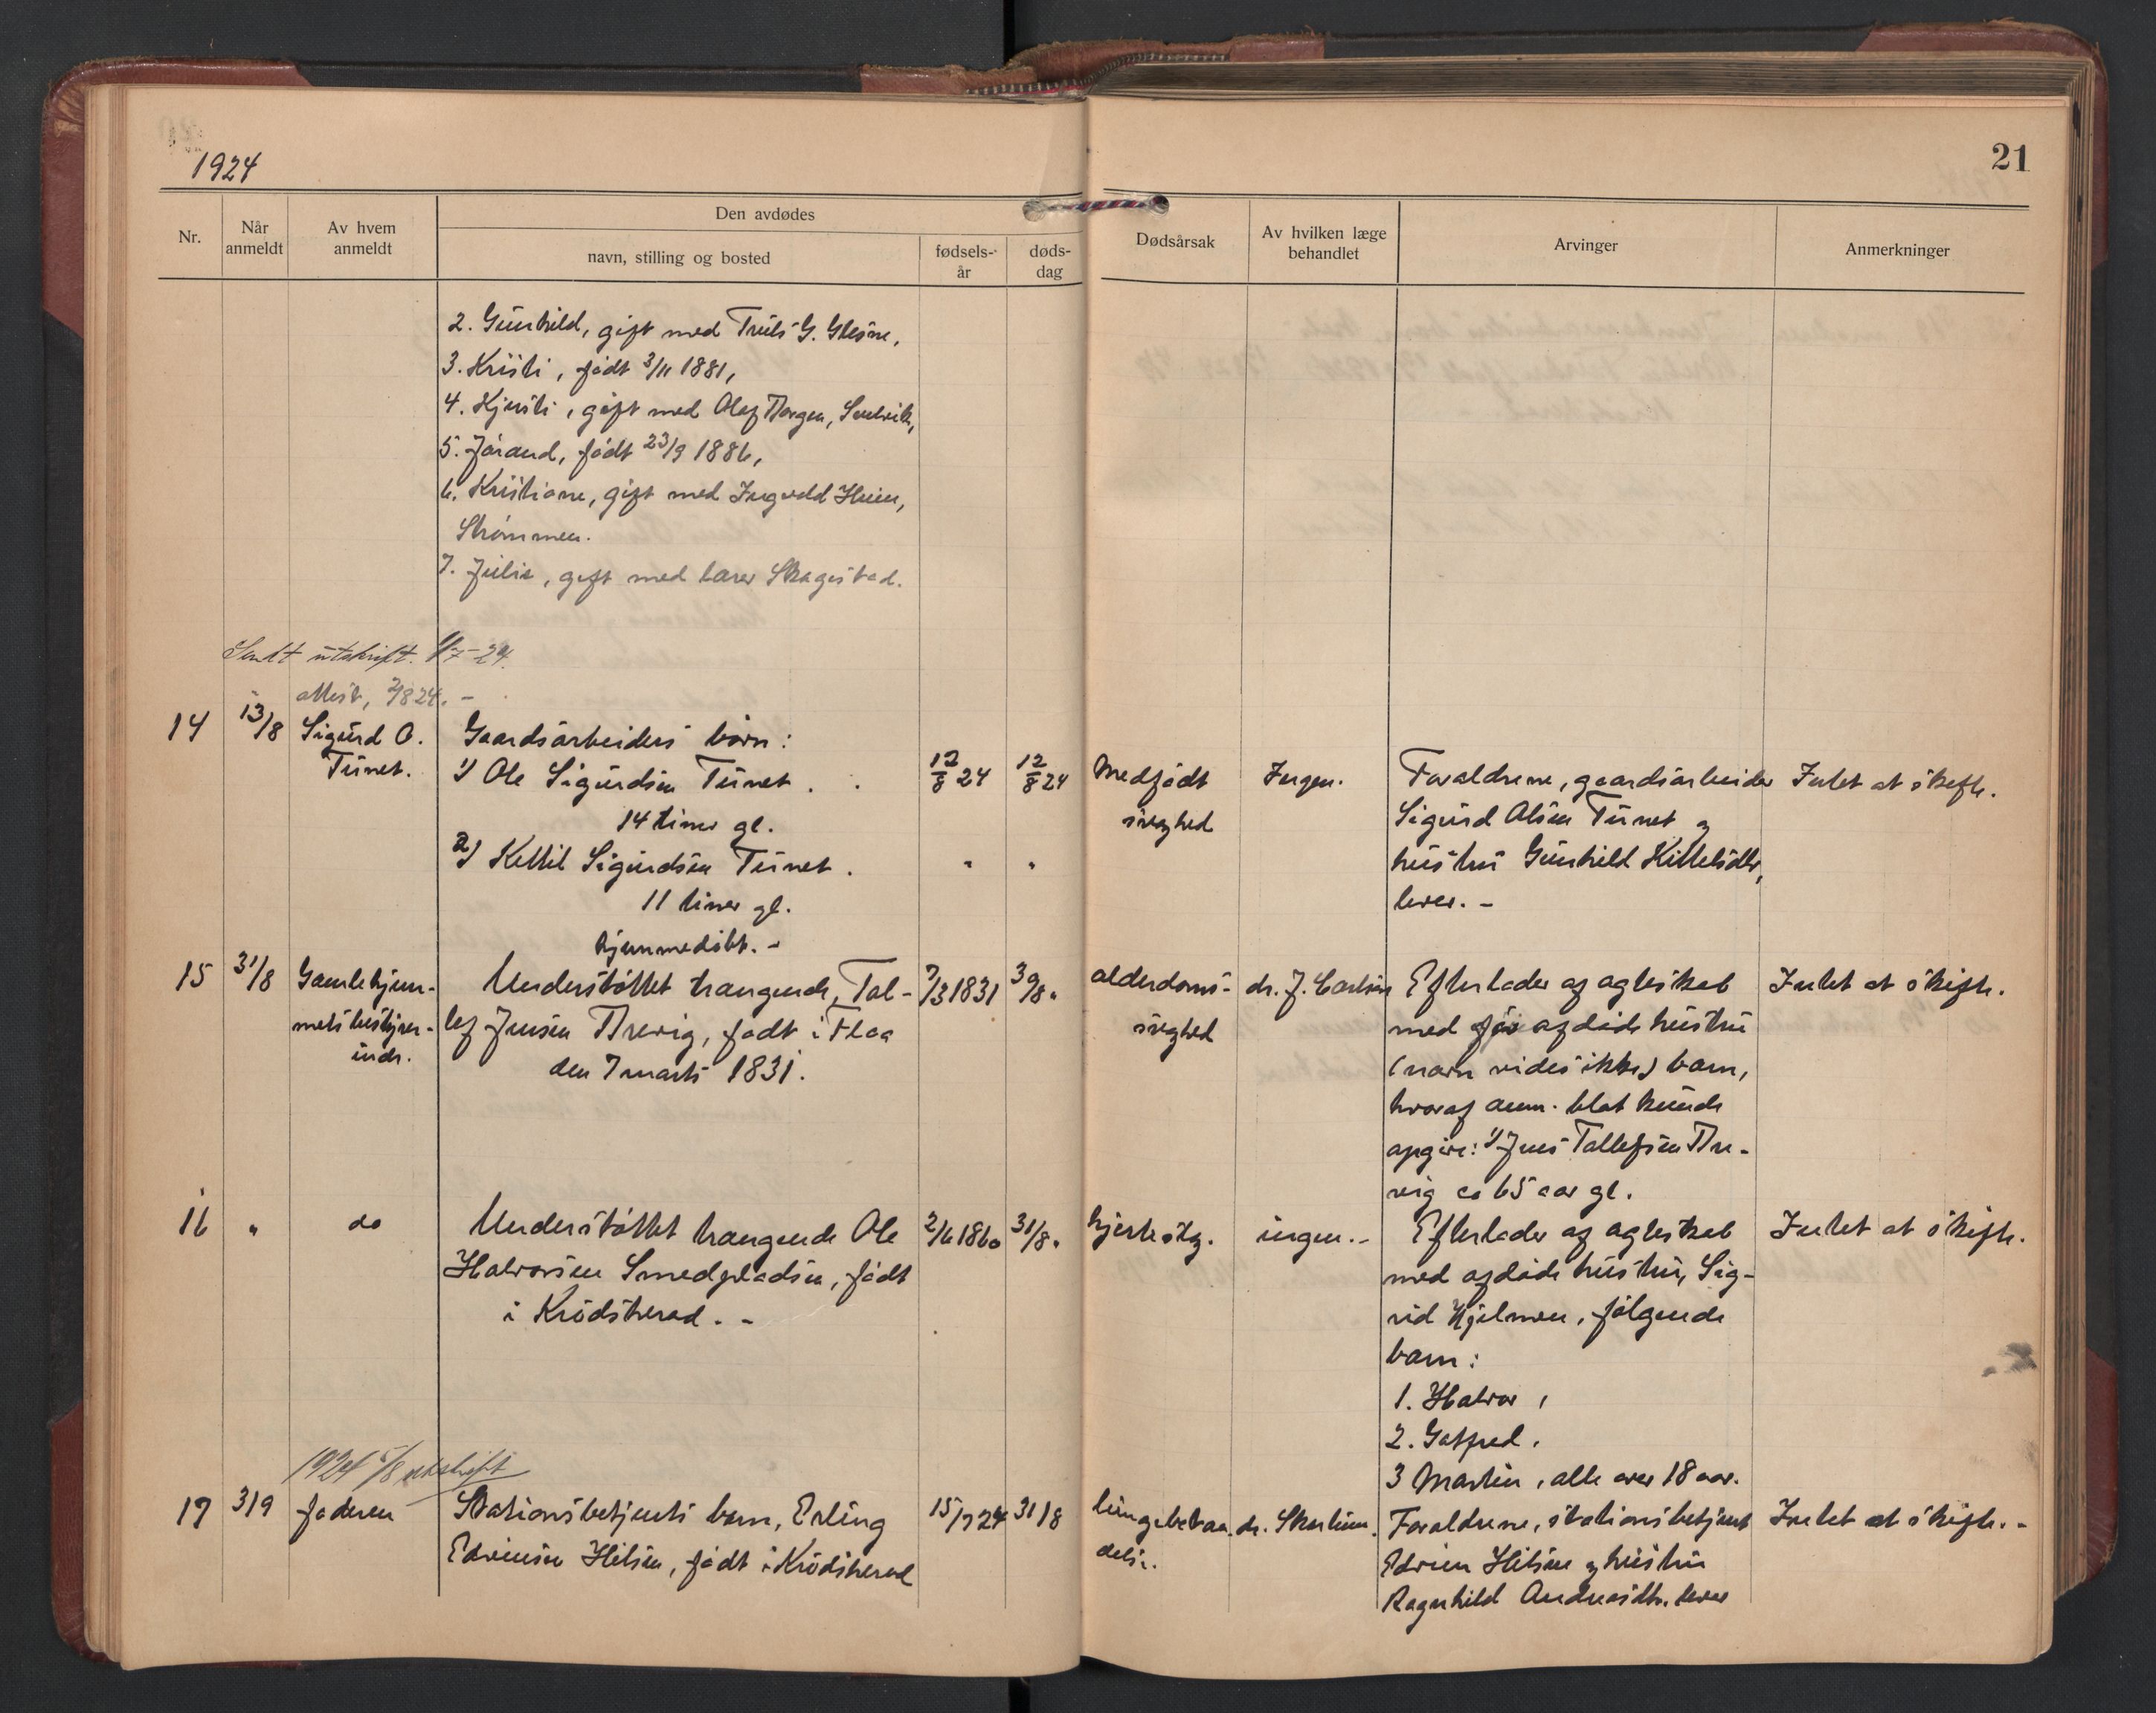 1924
21
Nr.
Når anmeldt
Av hvem anmeldt
Den avdødes
navn, stilling og bosted
fødsels-år
døds-dag
Dødsårsak
Av hvilken læge behandlet
Arvinger
Anmerkninger
2. Gunhild, gift med Truls G. Glesne,
3. Kristi, født 3/11 1881,
4. Kjersti, gift med Olaf Borgen,
5. Jørand, født 23/9 1886,
6. Kristiane, gift med Ingvald Heim,
Strømmen.
7. Julie, gift med lærer Skagestad.
Sendt utskrift. 1/7-24.
attest, 2/8 24. -
14
13/8
Sigurd O.
Tunet.
Gaardsarbeiders børn:
1) Ole Sigurdsen Tunet.
14 timer gl.
2) Kettil Sigurdsen Tunet.
11 timer gl.
hjemmedøbt. -
12/8 24
12/8 24
"
"
Medfødt
svaghed
Ingen.
Forældrene, gaardsarbeider
Sigurd Olsen Tunet og
hustru Gunhild Kittelsdtr,
lever. -
Intet at skifte.
15
31/8
Gamlehjem-
metsbestyrer-
inde.
Understøttet trængende, Tol-
lef Jensen Brevig, født i Flaa
den 7 marts 1831.
7/3 1831
30/8 "
alderdoms-
svaghed
dr. J. Carlsen
Efterlader af ægteskab
med før afdøde hustru
(navn vides ikke) barn,
hvoraf anm. blot kunde
opgive: 1) Jens Tollefsen Bre-
vig ca 65 aar gl.
Intet at skifte.
16
"
do
Understøttet trængende Ole
Halvorsen Smedpladsen, født
i Krødsherad. -
2/6 1860
31/8 "
hjertesyg.
ingen. -
Efterlader af ægteskab
med afdøde hustru, Sig-
rid Hjelmen, følgende
barn:
1. Halvor,
2. Gotfred,
3 Martin, alle over 18 aar.
Intet at skifte.
1924 5/8 utskrift
17
3/9
faderen
Stationsbetjents barn, Erling
Edvinsen Hilsen, født i Krødsherad
15/7 24
31/8
lungebetæn-
delse.
dr.
Forældrene, stationsbetjent
Edvin Hilsen og hustru
Ragnhild Andreasdtr. lever
Intet at skifte. -